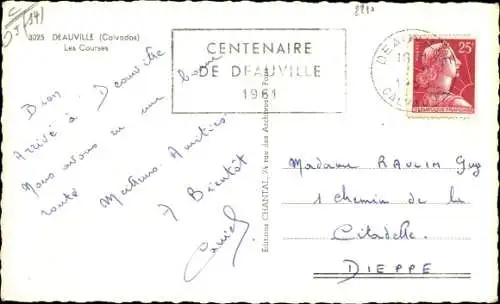 3025 DEAUVILLE (Calvados)
Les Courses
CENTENAIRE
DE DEAUVILLE
1961
25F
Bien
Arrivé à Deauville
Nous avons eu une bonne
route
Meilleures Amitiés
A Bientôt
Editions CHANTAL, 74 rue des Archives, Paris
Madame RAULIN Guy
1 Chemin de la
Citadelle
DIEPPE